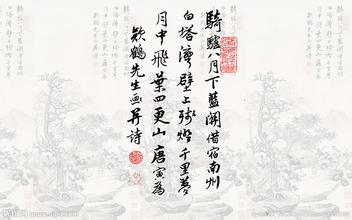 騎驢八月下藍關借宿南州
白塔灣壁上殘燈千里夢
月中飛葉四更山唐寅為
欵鶴先生畫并詩